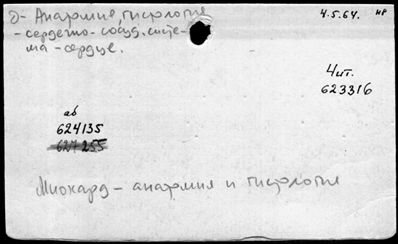 д- Анатомия, гистология
- сердечно-сосуд. систе-
ма - сердце.
4.5.64. НР
4ит.
623316
аб
624135
627255
Миокард - анатомия и гистология